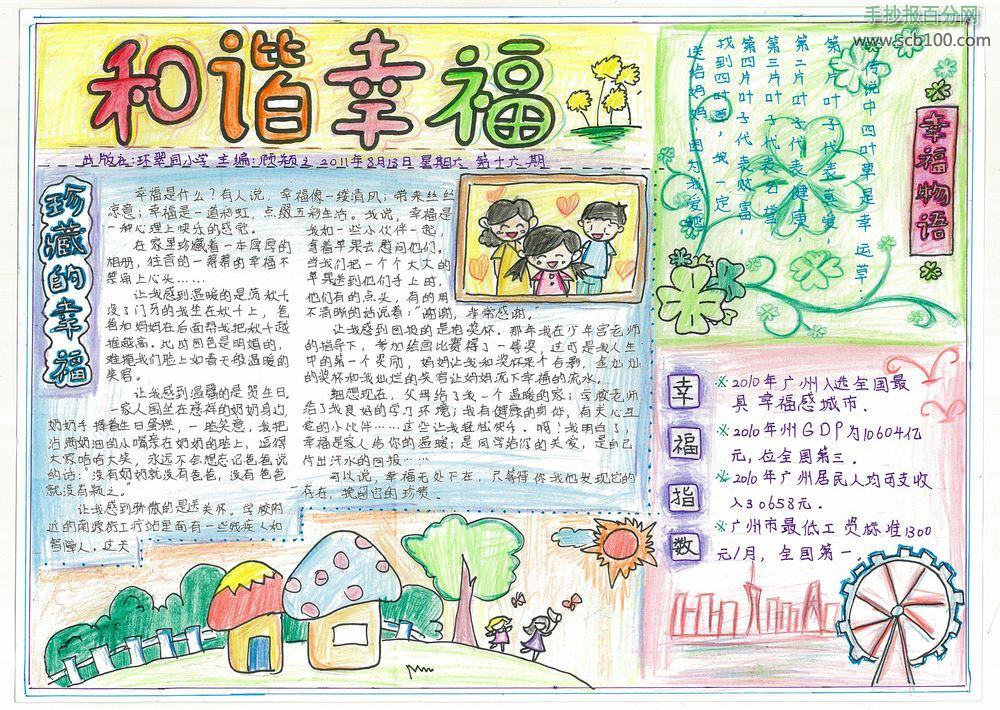 手抄报百分网
www.scb100.com
和谐幸福
出版在:环翠园小学 主编:顾颖之 2011年8月13日 星期六 第十六期
珍藏的幸福
幸福是什么?有人说,幸福像一缕清风,带来丝丝
凉意;幸福是一道彩虹,点缀五彩生活。我说,幸福是
一种心理上快乐的感觉。
在家里珍藏着一本厚厚的
相册,往昔的一幕幕的幸福不
禁涌上心头……
让我感到温暖的是荡秋千,
没了门牙的我坐在秋千上,爸
爸和妈妈在后面帮我把秋千越
推越高。此时同色是明媚的,
难掩我们脸上如春天般温暖的
笑容。
让我感到温馨的是贺生日,
一家人围坐在慈祥的奶奶身边,
奶奶手捧着生日蛋糕,一脸笑意,我把
沾满奶油的小嘴亲在奶奶的脸上,逗得
大家哈哈大笑,永远不会想忘记爸爸说
的话:"没有奶奶就没有爸爸,没有爸爸
就没有颖之。"
让我感到骄傲的是送关怀。学校附
近的南源街工疗站里面有一些残疾人和
智障人。这天
我和一些小伙伴一起,
拿着苹果去慰问他们。
当我们把一个个大大的
苹果送到他们手上时,
他们有的点头,有的用
不清晰的话说着:"谢谢,非常感谢。"
让我感到回报的是抱奖杯。那年我在少年宫老师
的指导下,参加绘画比赛得了一等奖,这可是我人生
中的第一个奖励,妈妈让我和奖杯来个合影,金灿灿
的奖杯和我灿烂的笑容让妈妈流下幸福的流水。
细想现在,父母给了我一个温暖的家;学校老师
给了我良好的学习环境;我有健康的身体,有关心互
爱的小伙伴……这些让我轻松快乐。啊!我明白了,
幸福是家人给你的温暖;是同学给你的关爱,是自己
付出汗水的回报……
可以说,幸福无处不在,只等待你我他发现它的
存在,挽留它的珍贵。
幸福物语
传说中四叶草是幸运草,
第一片叶子代表真爱,
第二片叶子代表健康,
第三片叶子代表名誉,
第四片叶子代表财富,
找到四叶草,我一定
送给妈妈,因为我爱她
幸福指数
※2010年广州入选全国最
具幸福感城市.
※2010年州GDP为10604亿
元,位全国第三.
※2010年广州居民人均可支收
入30658元.
※广州市最低工资标准1300
元/月,全国第一.